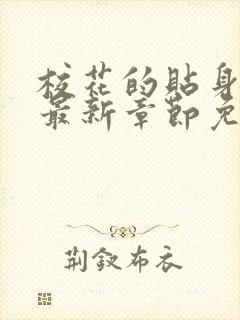 校花的贴身
最新章节免
荆钗布衣